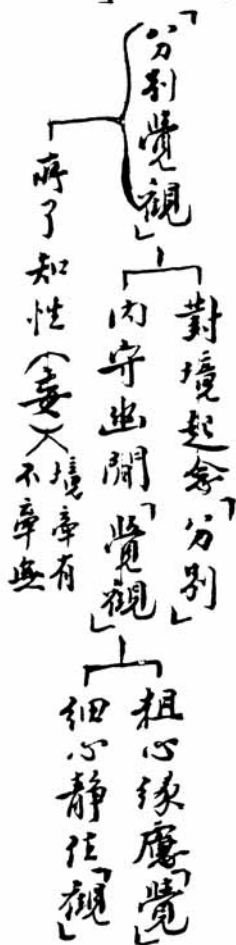 「分別覺觀」
對境起念「分別」
內守幽閒「覺觀」
粗心緣慮「覺」
細心靜住「觀」
所了知性(妄)
境牽有
不牽無